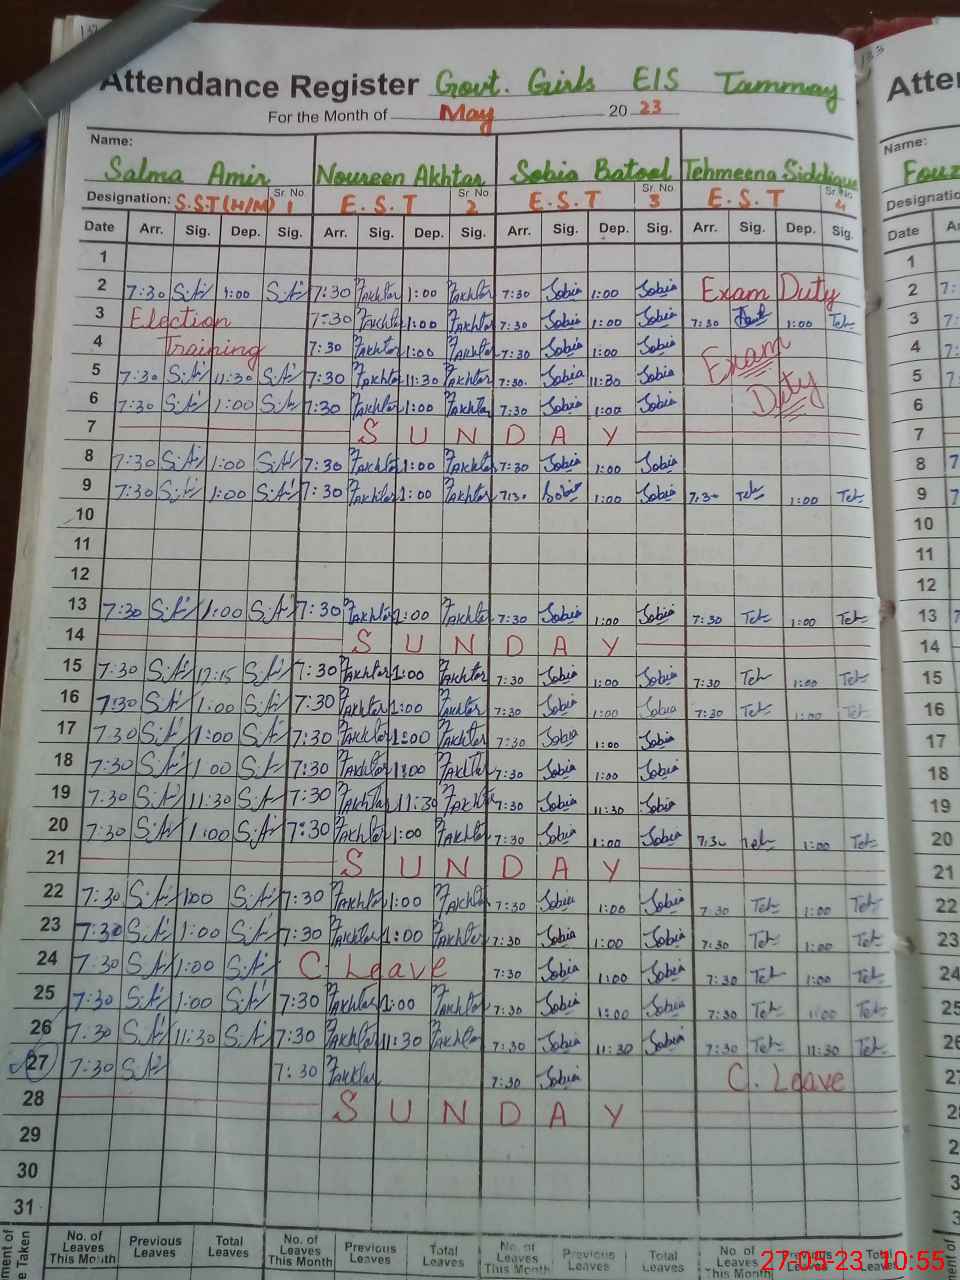 Attendance Register Govt. Girls E/S Tammay
For the Month of May 20 23
Name:
Salma Amir Noureen Akhtar Sobia Batool Tehmeena Siddique
Designation: S.S.T (H/M) Sr. No. 1 E.S.T Sr. No. 2 E.S.T Sr. No. 3 E.S.T Sr. No. 4
Date Arr. Sig. Dep. Sig. Arr. Sig. Dep. Sig. Arr. Sig. Dep. Sig. Arr. Sig. Dep. Sig.
1
2 7:30 S.A 1:00 S.A 7:30 Akhtar 1:00 Akhtar 7:30 Sobia 1:00 Sobia Exam Duty
3 Election 7:30 Akhtar 1:00 Akhtar 7:30 Sobia 1:00 Sobia 7:30 1:00 Teh
4 Training 7:30 Akhtar 1:00 Akhtar 7:30 Sobia 1:00 Sobia Exam
5 7:30 S.A 11:30 S.A 7:30 Akhtar 11:30 Akhtar 7:30 Sobia 11:30 Sobia
6 7:30 S.A 1:00 S.A 7:30 Akhtar 1:00 Akhtar 7:30 Sobia 1:00 Sobia Duty
7 SUNDAY
8 7:30 S.A 1:00 S.A 7:30 Akhtar 1:00 Akhtar 7:30 Sobia 1:00 Sobia
9 7:30 S.A 1:00 S.A 7:30 Akhtar 1:00 Akhtar 7:30 Sobia 1:00 Sobia 7:30 Teh 1:00 Teh
10
11
12
13 7:30 S.A 1:00 S.A 7:30 Akhtar 1:00 Akhtar 7:30 Sobia 1:00 Sobia 7:30 Teh 1:00 Teh
14 SUNDAY
15 7:30 S.A 12:15 S.A 7:30 Akhtar 1:00 Akhtar 7:30 Sobia 1:00 Sobia 7:30 Teh 1:00 Teh
16 7:30 S.A 1:00 S.A 7:30 Akhtar 1:00 Akhtar 7:30 Sobia 1:00 Sobia 7:30 Teh 1:00 Teh
17 7:30 S.A 1:00 S.A 7:30 Akhtar 1:00 Akhtar 7:30 Sobia 1:00 Sobia
18 7:30 S.A 1:00 S.A 7:30 Akhtar 1:00 Akhtar 7:30 Sobia 1:00 Sobia
19 7:30 S.A 11:30 S.A 7:30 Akhtar 11:30 Akhtar 7:30 Sobia 11:30 Sobia
20 7:30 S.A 1:00 S.A 7:30 Akhtar 1:00 Akhtar 7:30 Sobia 1:00 Sobia 7:30 Teh 1:00 Teh
21 SUNDAY
22 7:30 S.A 1:00 S.A 7:30 Akhtar 1:00 Akhtar 7:30 Sobia 1:00 Sobia 7:30 Teh 1:00 Teh
23 7:30 S.A 1:00 S.A 7:30 Akhtar 1:00 Akhtar 7:30 Sobia 1:00 Sobia 7:30 Teh 1:00 Teh
24 7:30 S.A 1:00 S.A C. Leave 7:30 Sobia 1:00 Sobia 7:30 Teh 1:00 Teh
25 7:30 S.A 1:00 S.A 7:30 Akhtar 1:00 Akhtar 7:30 Sobia 1:00 Sobia 7:30 Teh 1:00 Teh
26 7:30 S.A 11:30 S.A 7:30 Akhtar 11:30 Akhtar 7:30 Sobia 11:30 Sobia 7:30 Teh 11:30 Teh
27 7:30 S.A 7:30 Akhtar 7:30 Sobia C. Leave
28 SUNDAY
29
30
31
No. of Leaves This Month Previous Leaves Total Leaves No. of Leaves This Month Previous Leaves Total Leaves No. of Leaves This Month Previous Leaves Total Leaves No. of Leaves This Month Previous Leaves Total Leaves
27-05-23 10:55